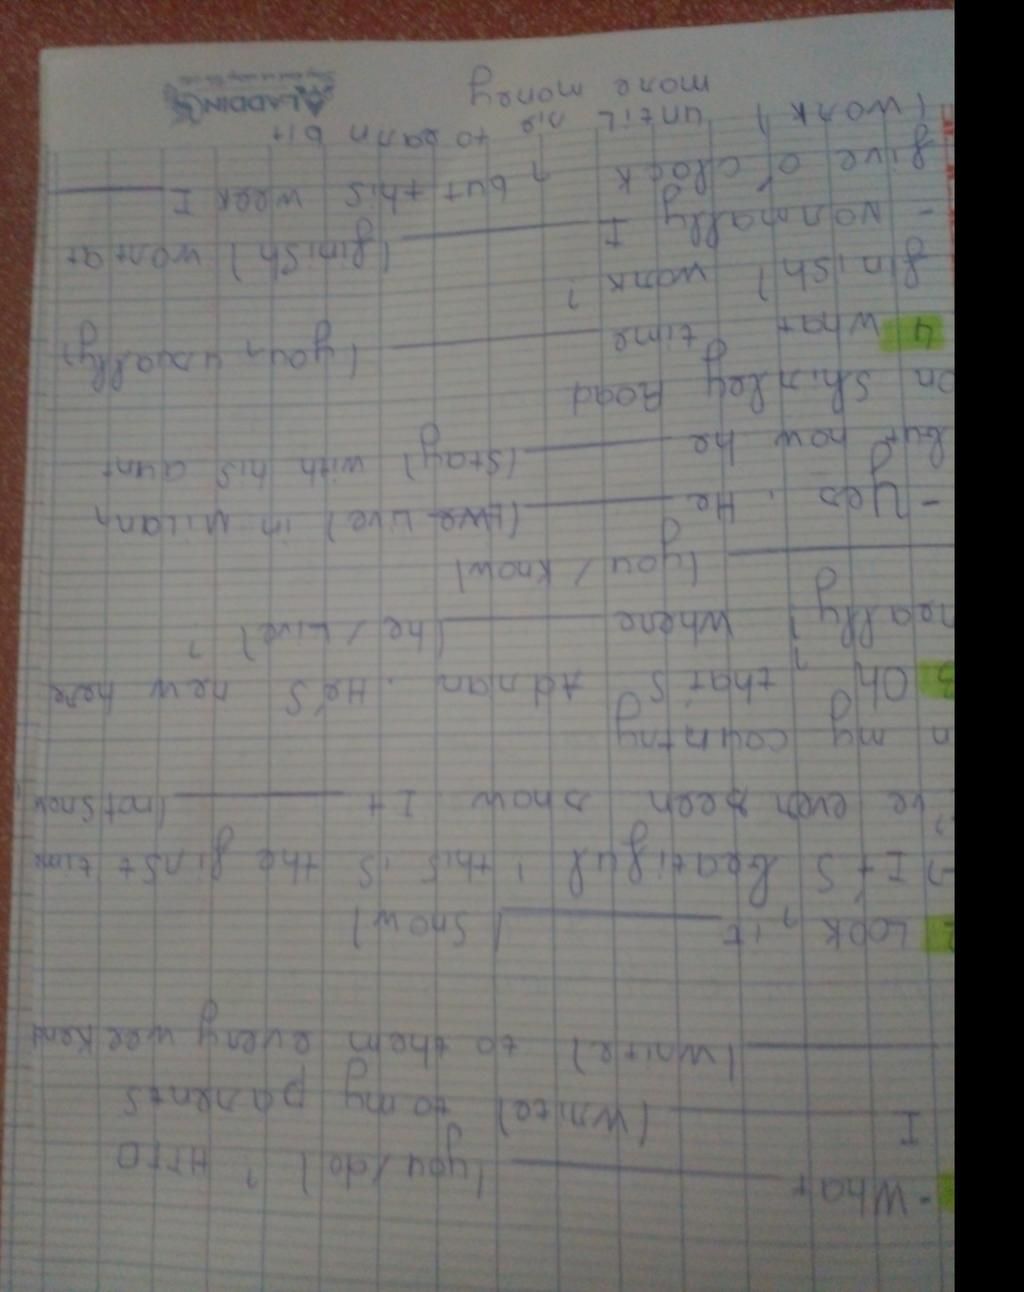 - What ______ (you/do) ? Atto
I ______ (write) to my parents
______ (write) to them every weekend
2 Look, it ______ (snow)
-> It's beatiful, this is the first time
I've ever seen snow It ______ (not snow
in my country
3 Oh, that's Adnan. He's new here
really? Where ______ (he / Live) ?
______ (you / know)
- Yes. He ______ (Live) in Milan,
but now he ______ (stay) with his aunt
on Shirley Road
4 What time ______ (you, usually)
finish) work ?
- Normally I ______ (finish) work at
five o'clock, but this week I ______
(work) until six to earn bit
more money
ALADDIN